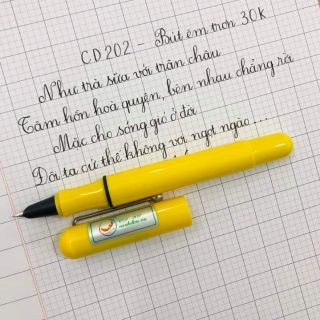 CD202 - Bút êm trơn 30k
Như trà sữa với trân châu
Tâm hồn hoà quyện, bên nhau chẳng rời
Mặc cho sóng gió ở đời
Đôi ta cứ thế không vơi ngọt ngào ...